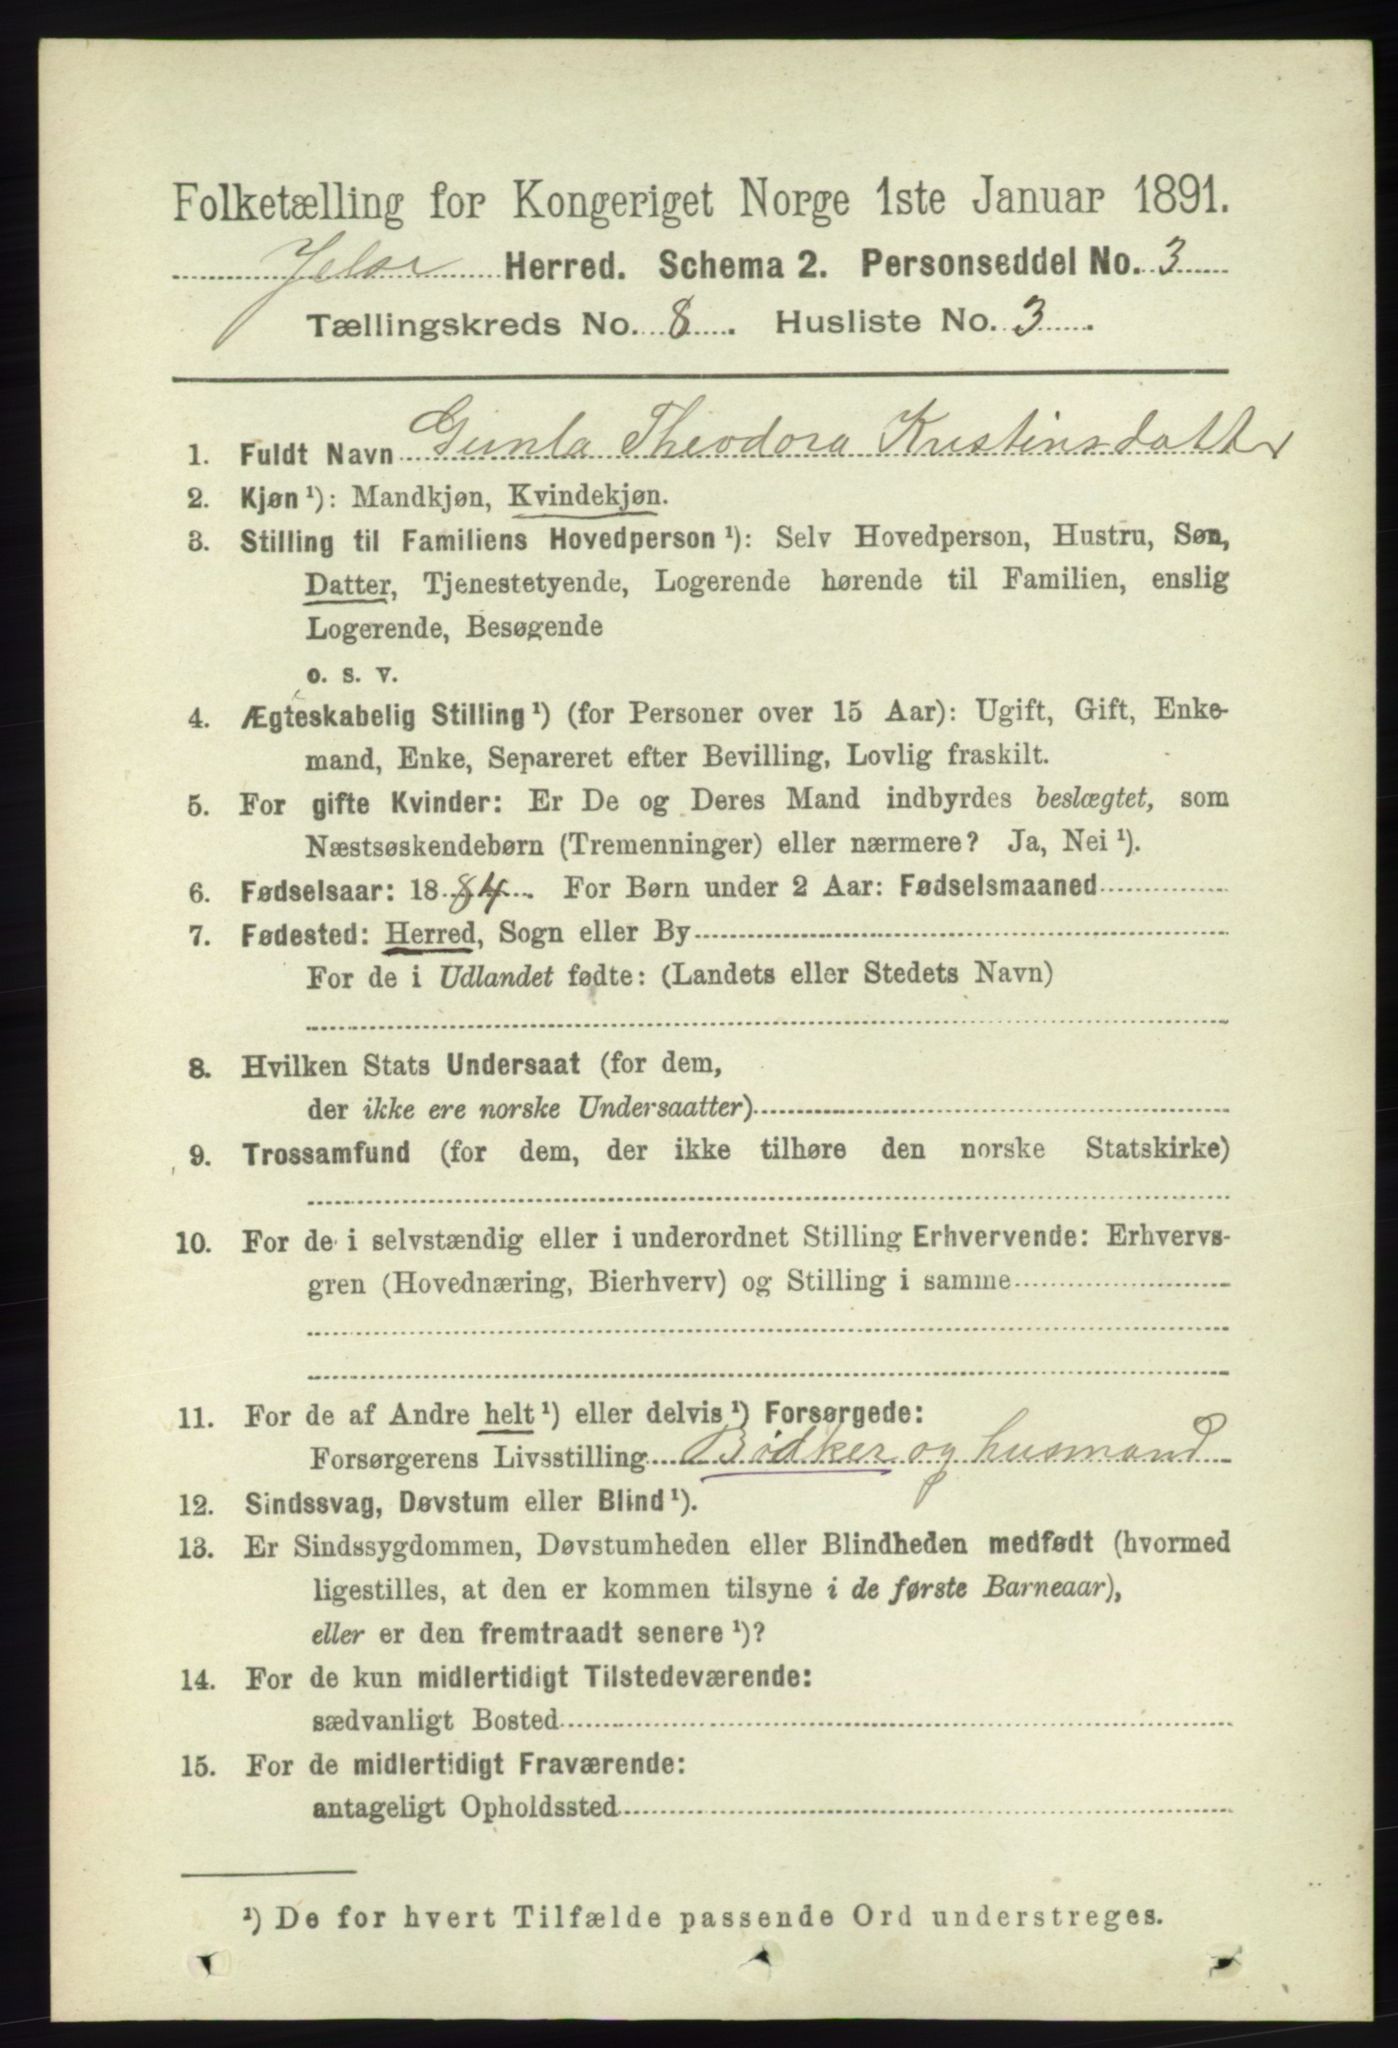 Folketælling for Kongeriget Norge 1ste Januar 1891.
Jelse Herred. Schema 2. Personseddel No. 3
Tællingskreds No. 8. Husliste No. 3.
1. Fuldt Navn Gunla Theodora Kristinsdatter
2. Kjøn ¹): Mandkjøn, Kvindekjøn.
3. Stilling til Familiens Hovedperson ¹): Selv Hovedperson, Hustru, Søn,
Datter, Tjenestetyende, Logerende hørende til Familien, enslig
Logerende, Besøgende
o. s. v.
4. Ægteskabelig Stilling ¹) (for Personer over 15 Aar): Ugift, Gift, Enke-
mand, Enke, Separeret efter Bevilling, Lovlig fraskilt.
5. For gifte Kvinder: Er De og Deres Mand indbyrdes beslægtet, som
Næstsøskendebørn (Tremenninger) eller nærmere? Ja, Nei ¹).
6. Fødselsaar: 1884. For Børn under 2 Aar: Fødselsmaaned
7. Fødested: Herred, Sogn eller By
For de i Udlandet fødte: (Landets eller Stedets Navn)
8. Hvilken Stats Undersaat (for dem,
der ikke ere norske Undersaatter)
9. Trossamfund (for dem, der ikke tilhøre den norske Statskirke)
10. For de i selvstændig eller i underordnet Stilling Erhvervende: Erhvervs-
gren (Hovednæring, Bierhverv) og Stilling i samme
11. For de af Andre helt ¹) eller delvis ¹) Forsørgede:
Forsørgerens Livsstilling Bødker og husmand
12. Sindssvag, Døvstum eller Blind ¹).
13. Er Sindssygdommen, Døvstumheden eller Blindheden medfødt (hvormed
ligestilles, at den er kommen tilsyne i de første Barneaar),
eller er den fremtraadt senere ¹)?
14. For de kun midlertidigt Tilstedeværende:
sædvanligt Bosted
15. For de midlertidigt Fraværende:
antageligt Opholdssted
¹) De for hvert Tilfælde passende Ord understreges.